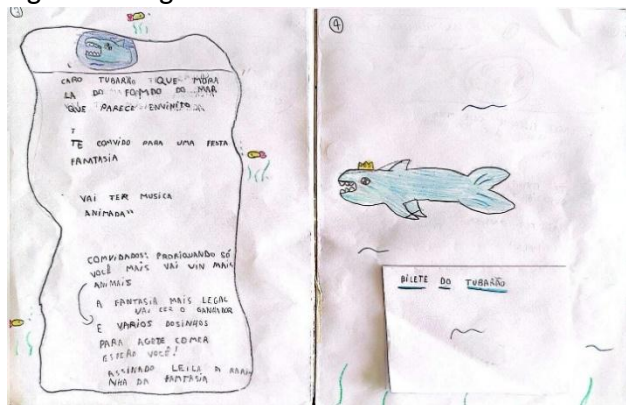 3
CARO TUBARÃO QUE MORA
LA DO FOMDO DO MAR
QUE PARECE ENVINITO
TE COMVIDO PARA UMA FESTA
FAMTASIA
VAI TER MUSICA
ANIMADA
COMVIDADOS: PADRIQUANDO SÓ
VOLÊ MAIS VAI VIN MAIS
ANIMAIS
A FANTASIA MAIS LEGAL
VAI CER O GANHADOR
E VARIOS DOSINHOS
PARA AGETE COMER
VOLÊ!
ASSINADO LEILA A ARAI
NHA DA FAMTASIA
4
BILETE DO TUBARÃO